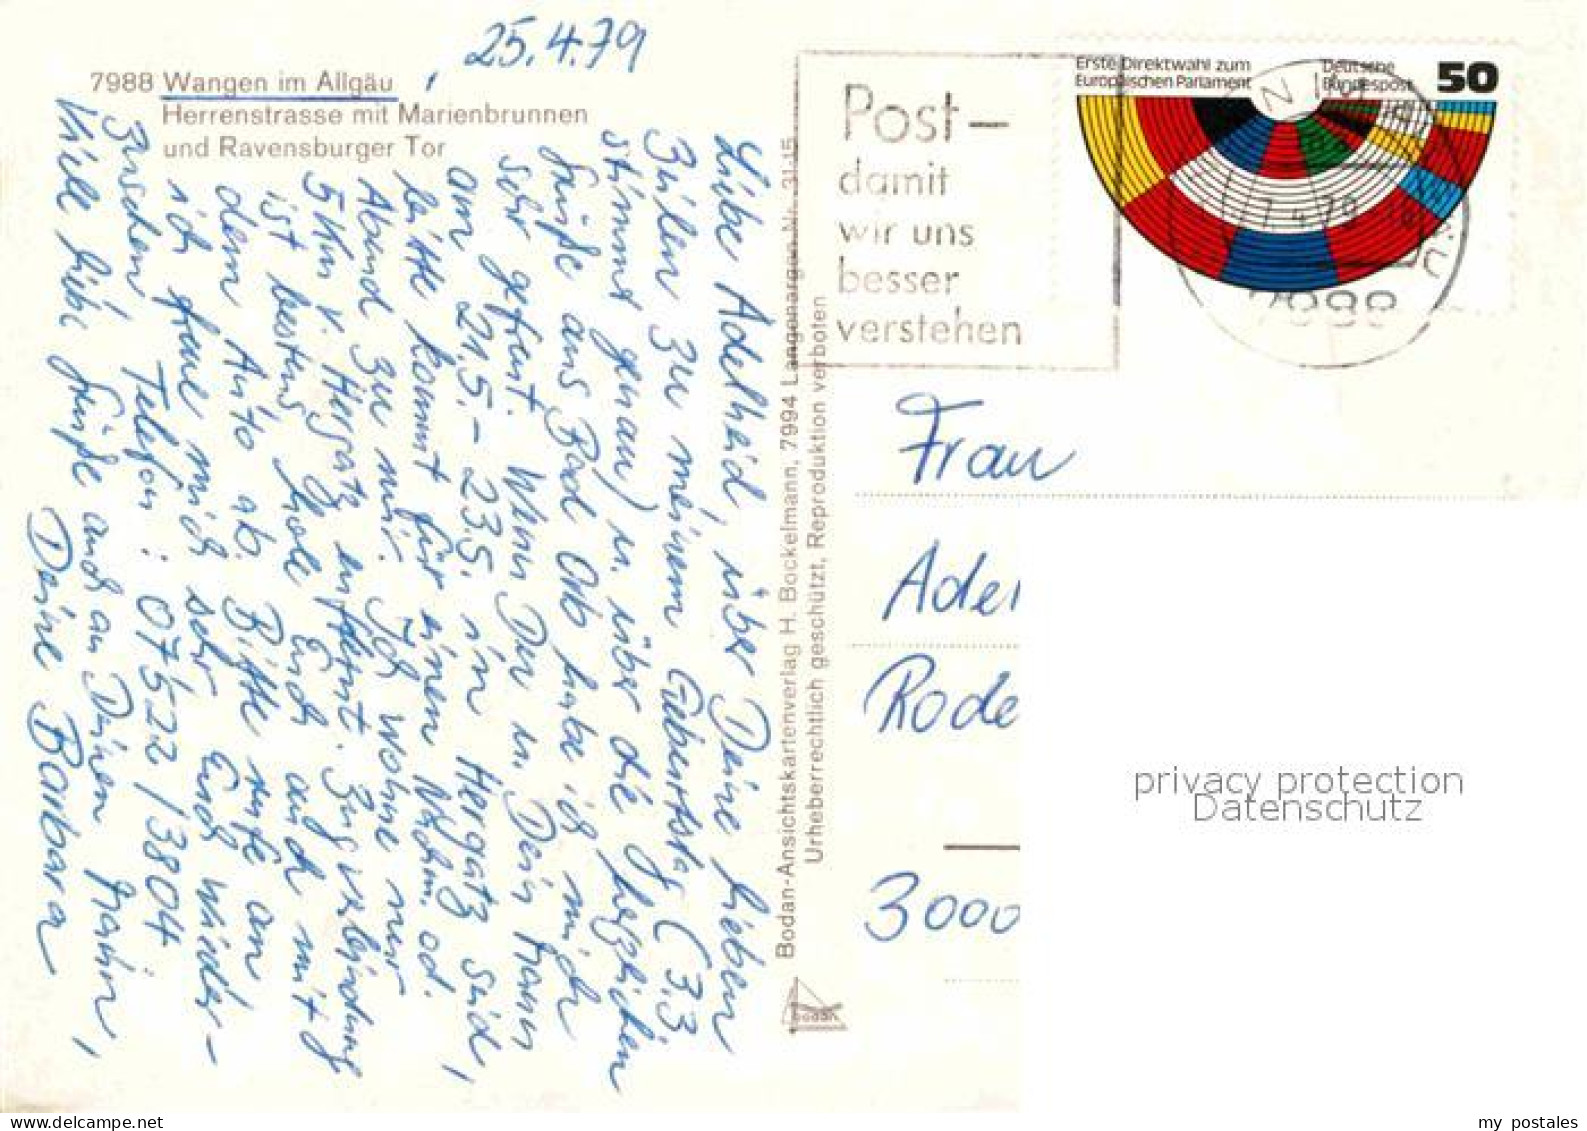 25.4.79
7988 Wangen im Allgäu,
Herrenstrasse mit Marienbrunnen
und Ravensburger Tor
Liebe Adelheid, über Deine lieben
Zeilen zu meinem Geburtstag (3.3
stimmt genau) u. über die herzlichen
Grüße aus Bad Orb habe ich mich
sehr gefreut. Wenn Du u. Dein Mann
am 21.5.-23.5. in Hergatz seid,
bitte kommt für einen Nachm. od.
Abend zu mir. Ich wohne nur
5 Km v. Hergatz entfernt. Zugverbindung
ist bestens, hole Euch auch mit
dem Auto ab. Bitte rufe an
ich freue mich sehr Euch wieder-
zusehen! Telefon: 07522/3804
Viele liebe Grüße auch an Deinen Mann,
Deine Barbara
Bodan-Ansichtskartenverlag H. Bockelmann, 7994 Langenargen Nr. 31:15
Urheberrechtlich geschützt, Reproduktion verboten
bodan
Post-
damit
wir uns
besser
verstehen
Erste Direktwahl zum
Europäischen Parlament
Deutsche
Bundespost
50
7988
Frau
Ade
Rode
3000
privacy protection
Datenschutz
my postales